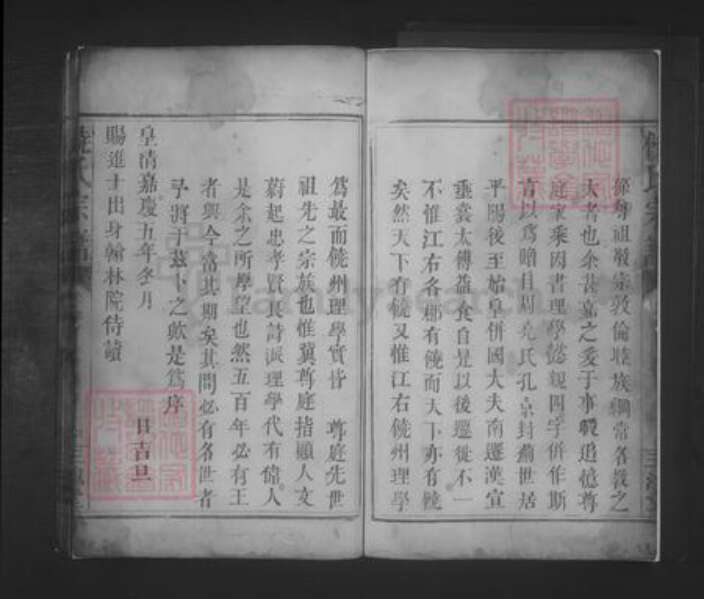 尊祖敬宗敦倫睦族綱常名教之
大者也余甚嘉之爰于事竣追憶尊
庭家乘因書理學懿親四字併作斯
言以爲贈自周堯氏孔封衛世居
平陽後至始皇併國大夫南遷漢宣
垂裳太傅益食自是以後遷徙不一
不惟江右各郡有饒而天下亦有饒
矣然天下有饒又惟江右饒州理學
爲最而饒州理學實皆 尊庭先世
祖先之宗族也惟冀尊庭指顧人文
蔚起忠孝賢良詩派理學代有偉人
是余之所厚望也然五百年必有王
者興今當其期矣其間必有名世者
予將于茲卜之歟是爲序
皇清嘉慶五年冬月 日吉旦
賜進士出身翰林院侍讀
氏宗譜
FamilySearch